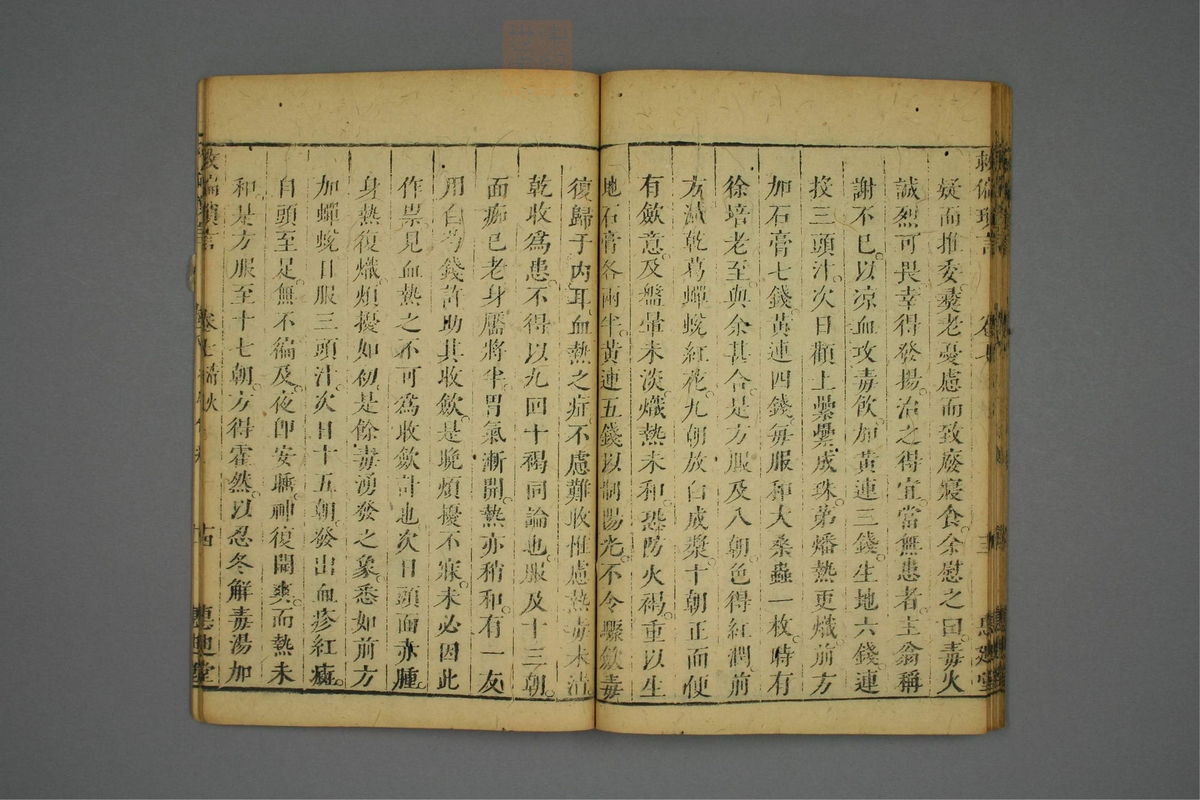 疑而推委憂老憂慮而致廢寢食余慰之曰毒火
誠烈可畏幸得發揚治之得宜當無患者主翁稱
謝不已以凉血攻毒飲加黃連三錢生地六錢連
投三頭汁次日顴上纍纍成珠弟燔熱更熾前方
加石膏七錢黃連四錢每服和大桑蟲一枚時有
徐培老至與余甚合是方服及八朝色得紅潤前
方減乾葛蟬蛻紅花九朝放白成漿十朝正面便
有歛意及盤暈未淡熾熱未和恐防火褐重以生
地石膏各兩半黃連五錢以制陽光不令驟歛毒
復歸于內耳血熱之症不慮難收惟慮熱毒未清
乾收為患不得以九回十褐同論也服及十三朝
面痂已老身靨將半胃氣漸開熱亦稍和有一友
用白芍錢許助其收歛是晚煩擾不寐未必因此
作祟見血熱之不可為收歛計也次日頭面亦腫
身熱復熾煩擾如初是餘毒湧發之象悉如前方
加蟬蛻日服三頭汁次日十五朝發出血疹紅癍
自頭至足無不徧及夜卽安睡神復開爽而熱未
和是方服至十七朝方得霍然以忍冬解毒湯加
救偏瑣言
卷七
十四
惠迪堂